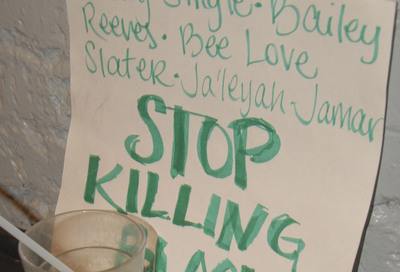 Single · Bailey
Reeves · Bee Love
Slater · Ja'leyah · Jamar
STOP
KILLING